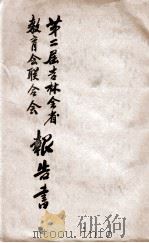 第二届吉林全省
教育会联合会
报告书